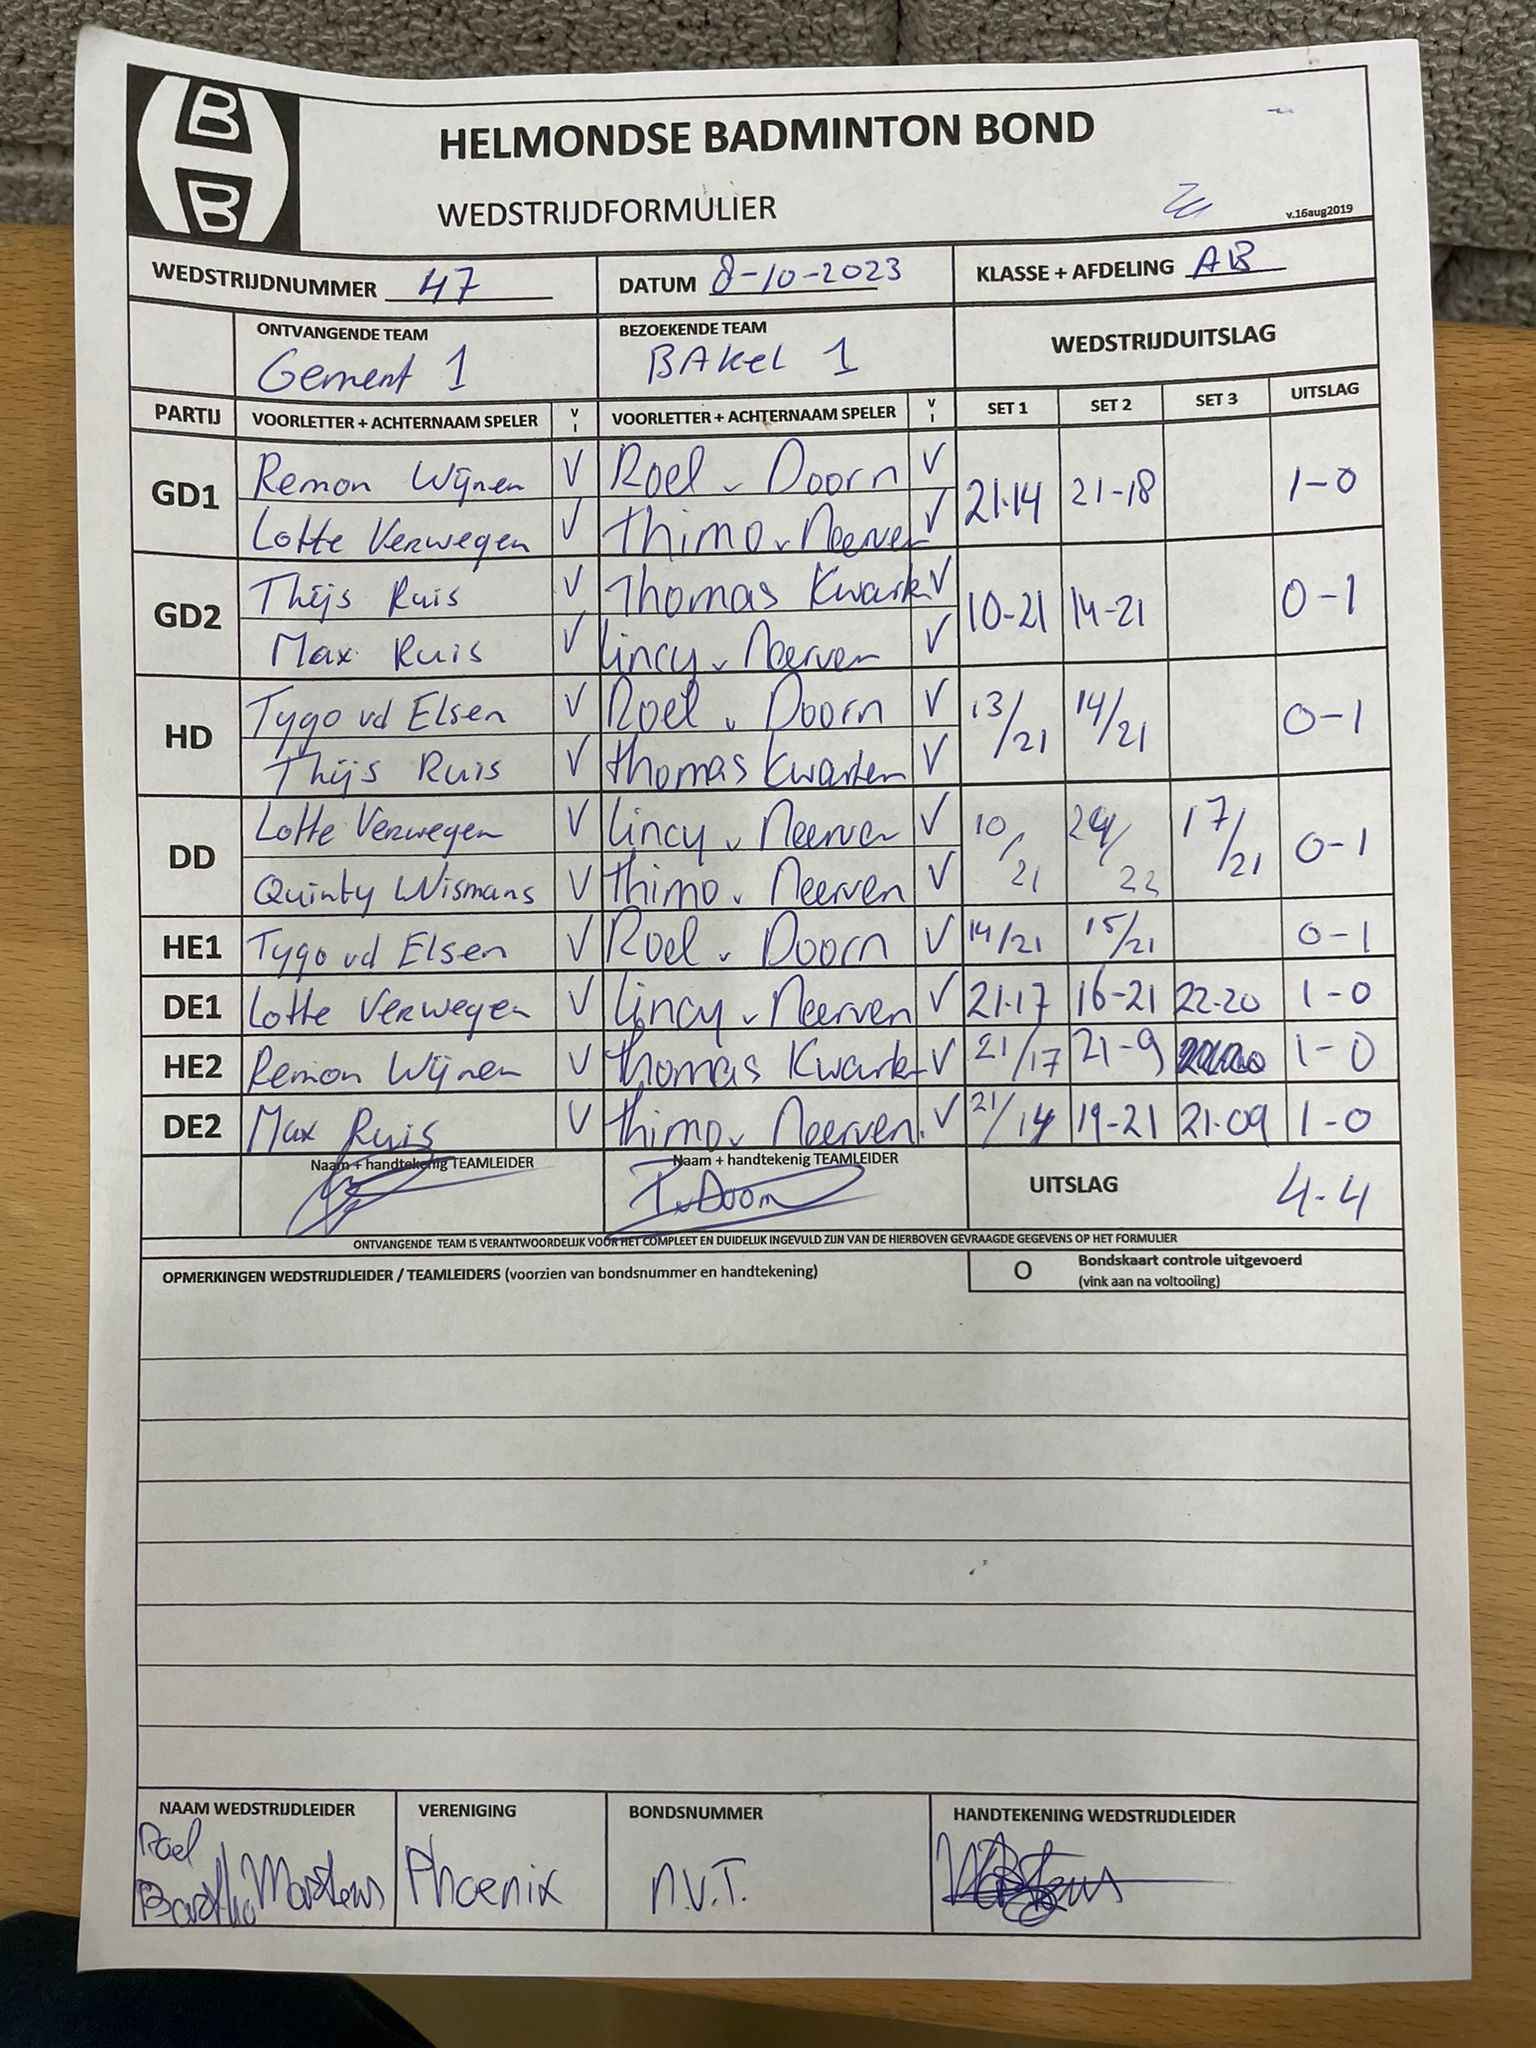 B
B
HELMONDSE BADMINTON BOND
WEDSTRIJDFORMULIER
v.16aug2019
WEDSTRIJDNUMMER 47 DATUM 8-10-2023 KLASSE + AFDELING AB
ONTVANGENDE TEAM BEZOEKENDE TEAM WEDSTRIJDUITSLAG
Gemert 1 BAKEL 1
PARTIJ VOORLETTER + ACHTERNAAM SPELER V I VOORLETTER + ACHTERNAAM SPELER V I SET 1 SET 2 SET 3 UITSLAG
GD1 Remon Wijnen V Roel v Doorn V 21-14 21-18 1-0
Lotte Verwegen V Thimo v Neerven V
GD2 Thijs Ruis V Thomas Kwark V 10-21 14-21 0-1
Max Ruis V Lincy v Neerven V
HD Tygo vd Elsen V Roel v Doorn V 13/21 14/21 0-1
Thijs Ruis V Thomas Kwarten V
DD Lotte Verwegen V Lincy v Neerven V 10/21 /22 17/21 0-1
Quinty Wismans V Thimo v Neerven V
HE1 Tygo vd Elsen V Roel v Doorn V 14/21 15/21 0-1
DE1 Lotte Verwegen V Lincy v Neerven V 21-17 16-21 22-20 1-0
HE2 Remon Wijnen V Thomas Kwark V 21/17 21-9 1-0
DE2 Max Ruis V Thimo v Neerven V 21/14 19-21 21-09 1-0
Naam + handtekenig TEAMLEIDER Naam + handtekenig TEAMLEIDER UITSLAG 4-4
v Doorn
ONTVANGENDE TEAM IS VERANTWOORDELIJK VOOR HET COMPLEET EN DUIDELIJK INGEVULD ZIJN VAN DE HIERBOVEN GEVRAAGDE GEGEVENS OP HET FORMULIER
OPMERKINGEN WEDSTRIJDLEIDER / TEAMLEIDERS (voorzien van bondsnummer en handtekening) O Bondskaart controle uitgevoerd
(vink aan na voltooiing)
NAAM WEDSTRIJDLEIDER VERENIGING BONDSNUMMER HANDTEKENING WEDSTRIJDLEIDER
Roel
Martens Phoenix N.V.T.